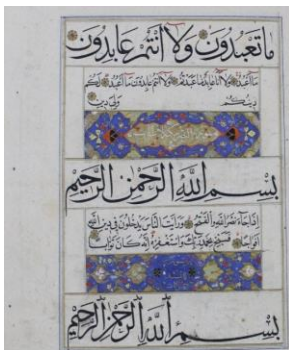 ما تعبدون ولا انتم عابدون
ما اعبد ولا انا عابد ما عبدتم ولا انتم عابدون ما اعبد لكم
دينكم ولي دين
بسم الله الرحمن الرحيم
اذا جاء نصر الله والفتح ورايت الناس يدخلون في دين الله
افواجا فسبح بحمد ربك واستغفره انه كان توابا
بسم الله الرحمن الرحيم